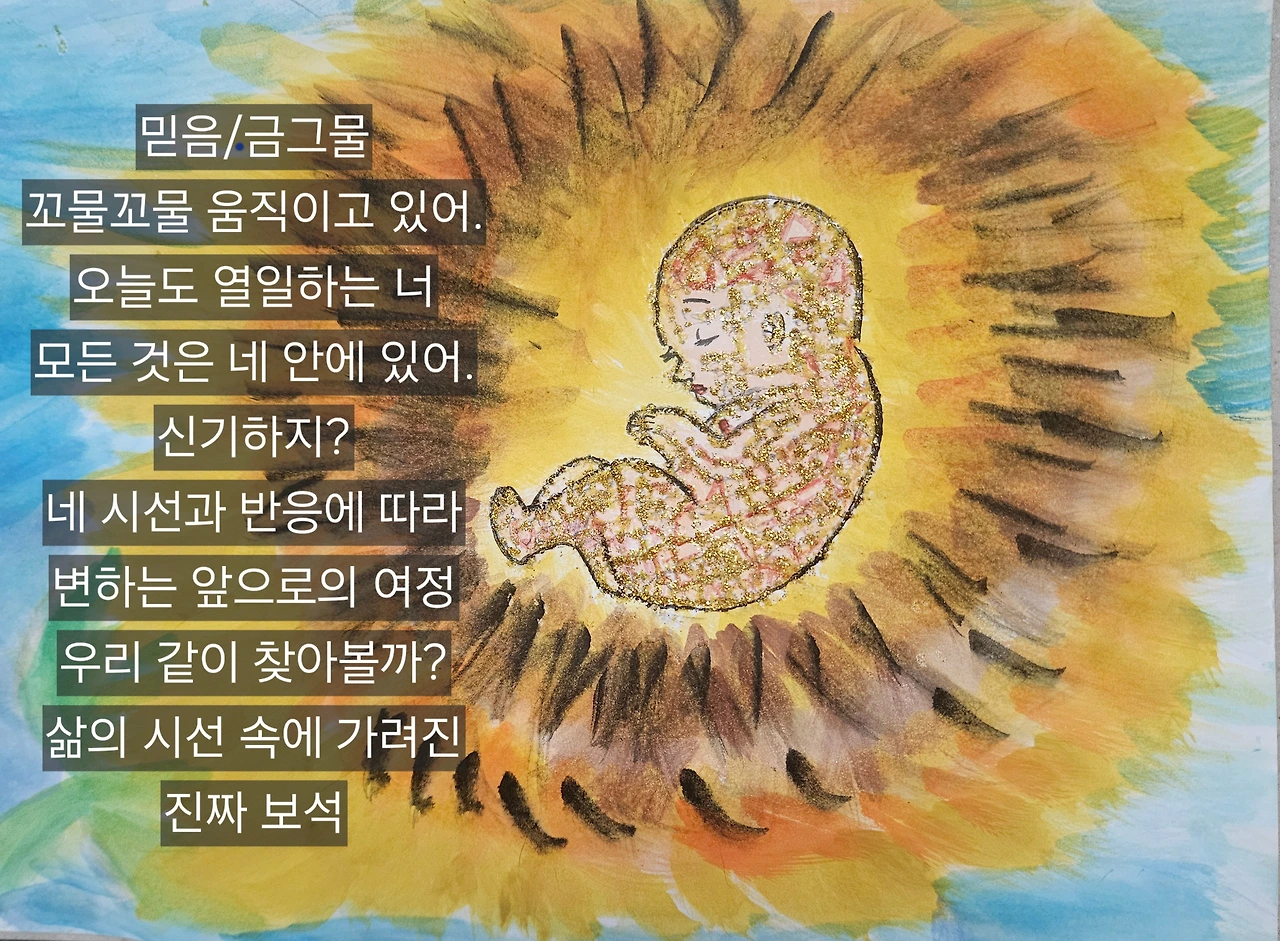 믿음/금그물
꼬물꼬물 움직이고 있어.
오늘도 열일하는 너
모든 것은 네 안에 있어.
신기하지?
네 시선과 반응에 따라
변하는 앞으로의 여정
우리 같이 찾아볼까?
삶의 시선 속에 가려진
진짜 보석